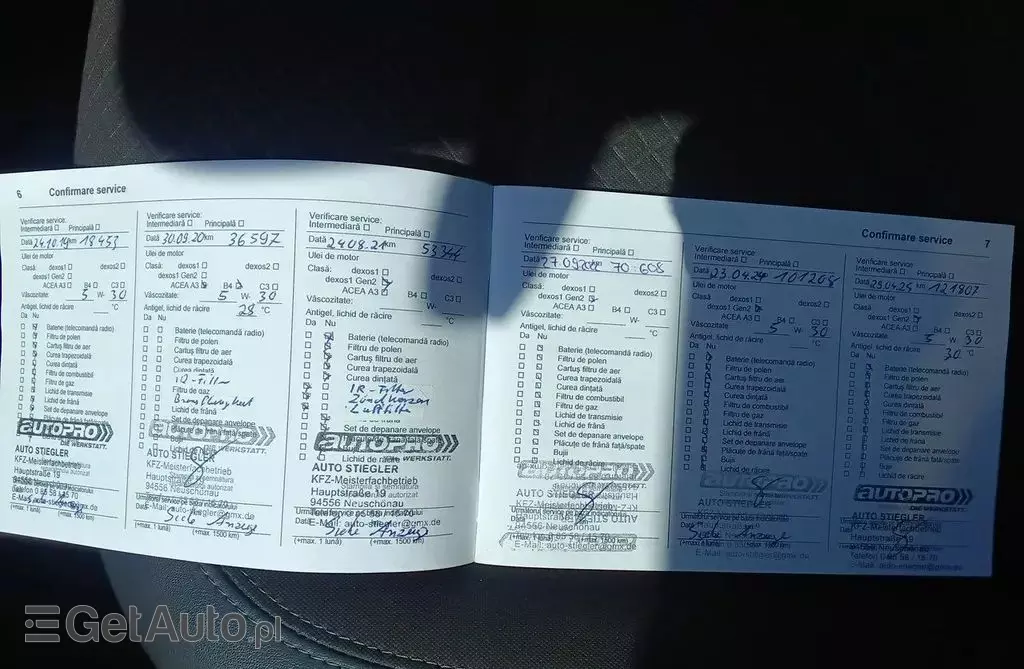 6 Confirmare service
Verificare service:
Intermediară Principală
Dată 24.10.19 km 18453
Ulei de motor
Clasă: dexos1 dexos2
dexos1 Gen2
ACEA A3 B4 C3
Vâscozitate: 5 W- 30
Antigel, lichid de răcire °C
Da Nu
Baterie (telecomandă radio)
Filtru de polen
Cartuş filtru de aer
Curea trapezoidală
Curea dinţată
Filtru de combustibil
Filtru de gaz
Lichid de transmisie
Lichid de frână
Set de depanare anvelope
AUTOPRO
DIE WERKSTATT.
AUTO STIEGLER
KFZ-Meisterfachbetrieb
Hauptstraße 19
94556 Neuschönau
(+max. 1 lună) (+max. 1500 km)
Verificare service:
Intermediară Principală
Dată 30.09.20 km 36597
Ulei de motor
Clasă: dexos1 dexos2
dexos1 Gen2
ACEA A3 B4 C3
Vâscozitate: 5 W- 30
Antigel, lichid de răcire 28 °C
Da Nu
Baterie (telecomandă radio)
Filtru de polen
Cartuş filtru de aer
Curea trapezoidală
Curea dinţată
Filtru de gaz
Lichid de frână
Set de depanare anvelope
Plăcuţe de frână faţă/spate
Bujii
AUTO STIEGLER
KFZ-Meisterfachbetrieb
Hauptstraße 19
94556 Neuschönau
Siehe Anzeige
(+max. 1 lună) (+max. 1500 km)
Verificare service:
Intermediară Principală
Dată 24.08.21 km 53344
Ulei de motor
Clasă: dexos1 dexos2
dexos1 Gen2
ACEA A3 B4 C3
Vâscozitate:
Antigel, lichid de răcire °C
Da Nu
Baterie (telecomandă radio)
Filtru de polen
Cartuş filtru de aer
Curea trapezoidală
Curea dinţată
Zündkerzen
Luftfilter
Set de depanare anvelope
AUTOPRO
DIE WERKSTATT.
Lichid de răcire
AUTO STIEGLER
KFZ-Meisterfachbetrieb
Hauptstraße 19
94556 Neuschönau
E-Mail: auto-stiegler@gmx.de
Siehe Anzeige
(+max. 1 lună) (+max. 1500 km)
Confirmare service 7
Verificare service:
Intermediară Principală
70 608
Ulei de motor
Clasă: dexos1 dexos2
dexos1 Gen2
ACEA A3 B4 C3
Vâscozitate:
Antigel, lichid de răcire °C
Da Nu
Baterie (telecomandă radio)
Filtru de polen
Cartuş filtru de aer
Curea trapezoidală
Curea dinţată
Filtru de combustibil
Filtru de gaz
Lichid de transmisie
Lichid de frână
Set de depanare anvelope
Plăcuţe de frână faţă/spate
Bujii
Lichid de răcire
AUTO STIEGLER
94556 Neuschönau
E-Mail: auto-stiegler@gmx.de
Verificare service:
Intermediară Principală
Dată 23.04.24 101208
Ulei de motor
Clasă: dexos1 dexos2
dexos1 Gen2
ACEA A3 B4 C3
Vâscozitate 5 W- 30
Antigel, lichid de răcire °C
Da Nu
Baterie (telecomandă radio)
Filtru de polen
Cartuş filtru de aer
Curea trapezoidală
Curea dinţată
Filtru de combustibil
Filtru de gaz
Lichid de transmisie
Lichid de frână
Set de depanare anvelope
Plăcuţe de frână faţă/spate
Bujii
Lichid de răcire
AUTO STIEGLER
KFZ-Meisterfachbetrieb
Hauptstraße 19
94556 Neuschönau
Siehe Anzeige
E-Mail: auto-stiegler@gmx.de
Verificare service:
Intermediară Principală
Dată 25.04.25 km 121807
Ulei de motor
Clasă: dexos1 dexos2
dexos1 Gen2
ACEA A3 B4 C3
Vâscozitate: 5 W- 30
Antigel, lichid de răcire 30 °C
Da Nu
Baterie (telecomandă radio)
Filtru de polen
Cartuş filtru de aer
Curea trapezoidală
Curea dinţată
Filtru de combustibil
Filtru de gaz
Lichid de transmisie
Lichid de frână
Set de depanare anvelope
Plăcuţe de frână faţă/spate
Bujii
Lichid de răcire
AUTOPRO
DIE WERKSTATT.
AUTO STIEGLER
KFZ-Meisterfachbetrieb
Hauptstraße 19
94556 Neuschönau
E-Mail: auto-stiegler@gmx.de
GetAuto.pl